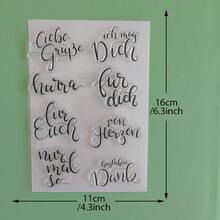 Liebe
Grüße
ich mag
Dich
hurra
für
dich
für
Euch
von
Herzen
nur
mal
so...
Herzlichen
Dank
16cm
/6.3inch
11cm
/4.3inch